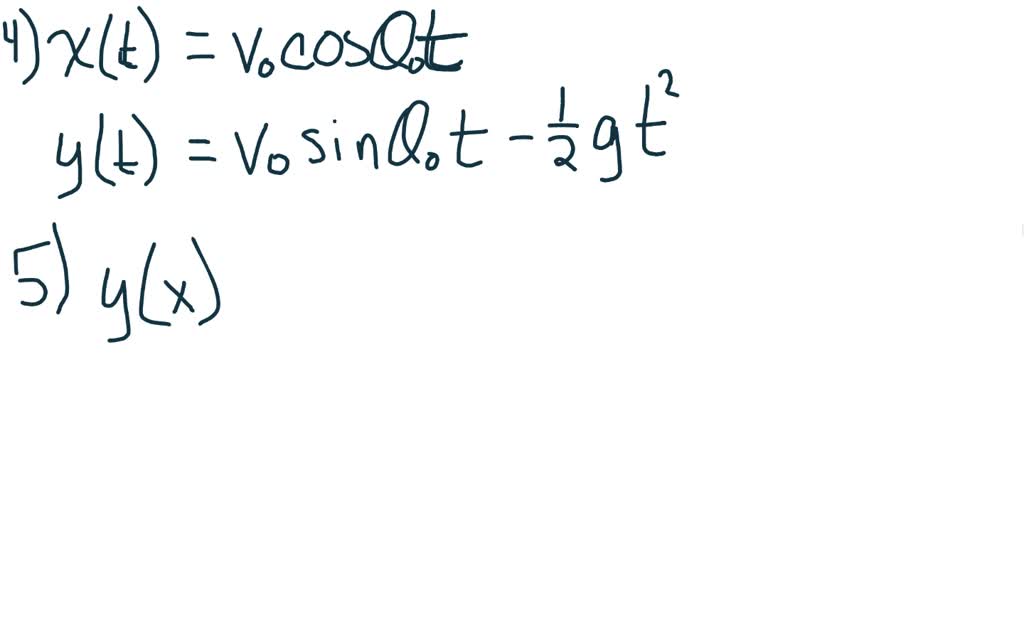 4) x(t) = v₀cosθ₀t
y(t) = v₀ sinθ₀ t - ½gt²
5) y(x)